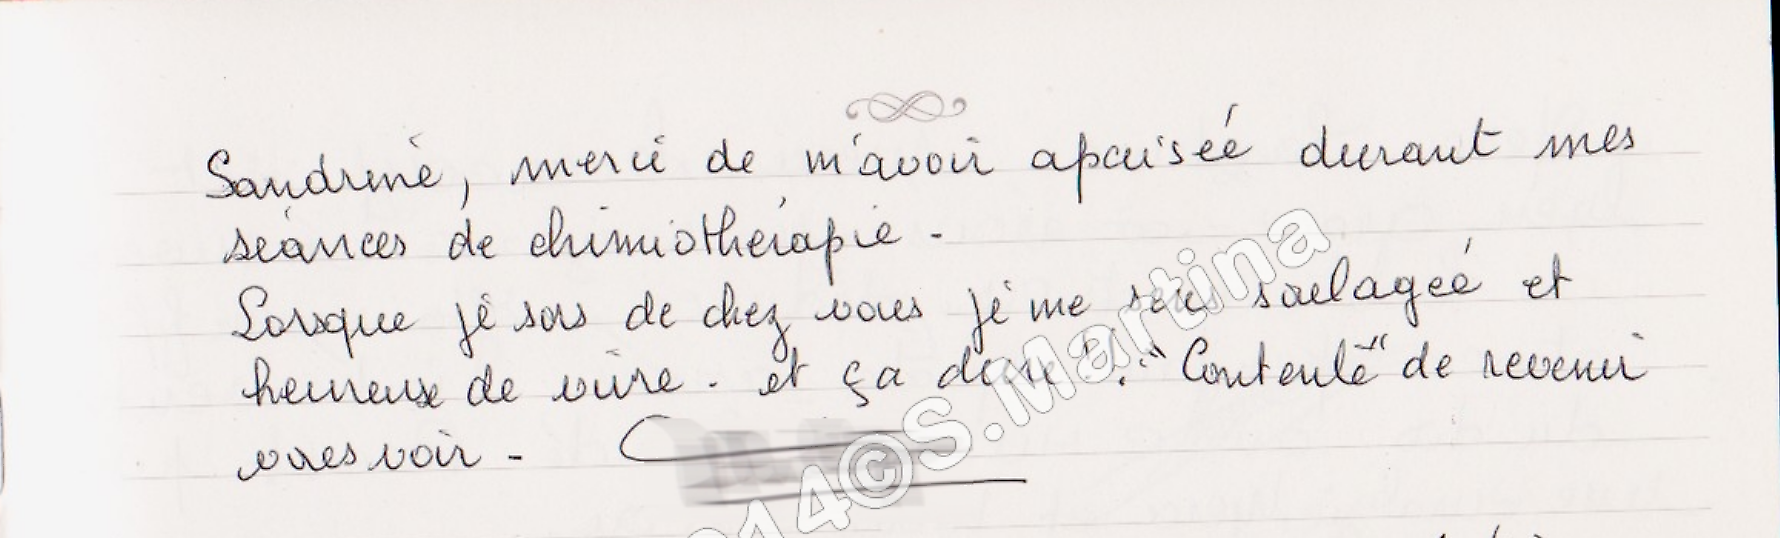 Sandrine, merci de m'avoir apaisée durant mes
séances de chimiothérapie.
Lorsque je sors de chez vous je me sens soulagée et
heureuse de vivre. et ça dure !. "Contente" de revenir
vous voir.
14©S.Martina